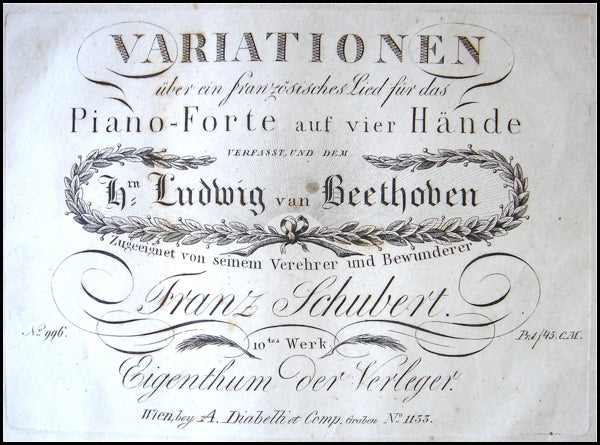 VARIATIONEN
über ein französisches Lied für das
Piano-Forte auf vier Hände
VERFASST, UND DEM
Hrn Ludwig van Beethoven
Zugeeignet von seinem Verehrer und Bewunderer
Franz Schubert.
No. 996.
10tes Werk.
45. C.M.
Eigenthum der Verleger.
Wien, bey A. Diabelli et Comp. Graben No. 1133.